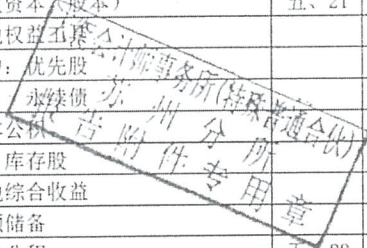 资本（股本） 五、21
权益工具
：优先股
永续债
公积
库存股
综合收益
储备
会计师事务所(特殊普通合伙)
苏州分所
报告附件专用章